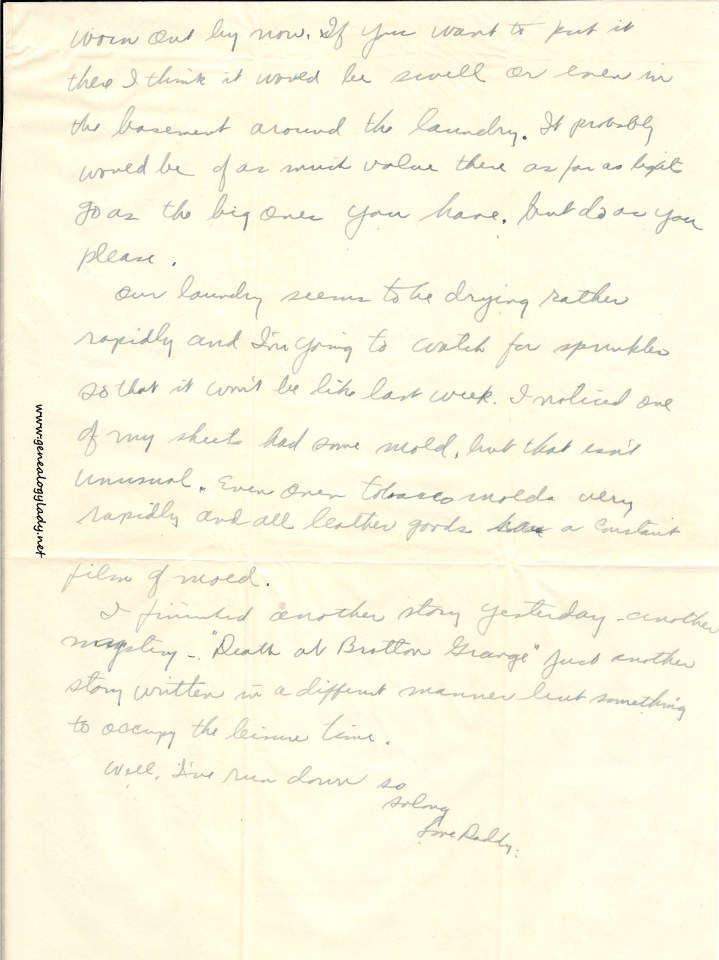 worn out by now. If you want to put it
there I think it would be swell or even in
the basement around the laundry. It probably
would be of as much value there as far as light
go as the big ones you have. but do as you
please.
Our laundry seems to be drying rather
rapidly and I'm going to watch for sprinkles
so that it won't be like last week. I noticed one
of my sheets had some mold, but that isn't
unusual. Even over tobacco molds very
rapidly and all leather goods has a constant
film of mold.
I finished another story yesterday - another
mystery - "Death at Bratton Grange" Just another
story written in a different manner but something
to occupy the leisure time.
Well, I've run down so
so long
Love Daddy.
www.genealogylady.net